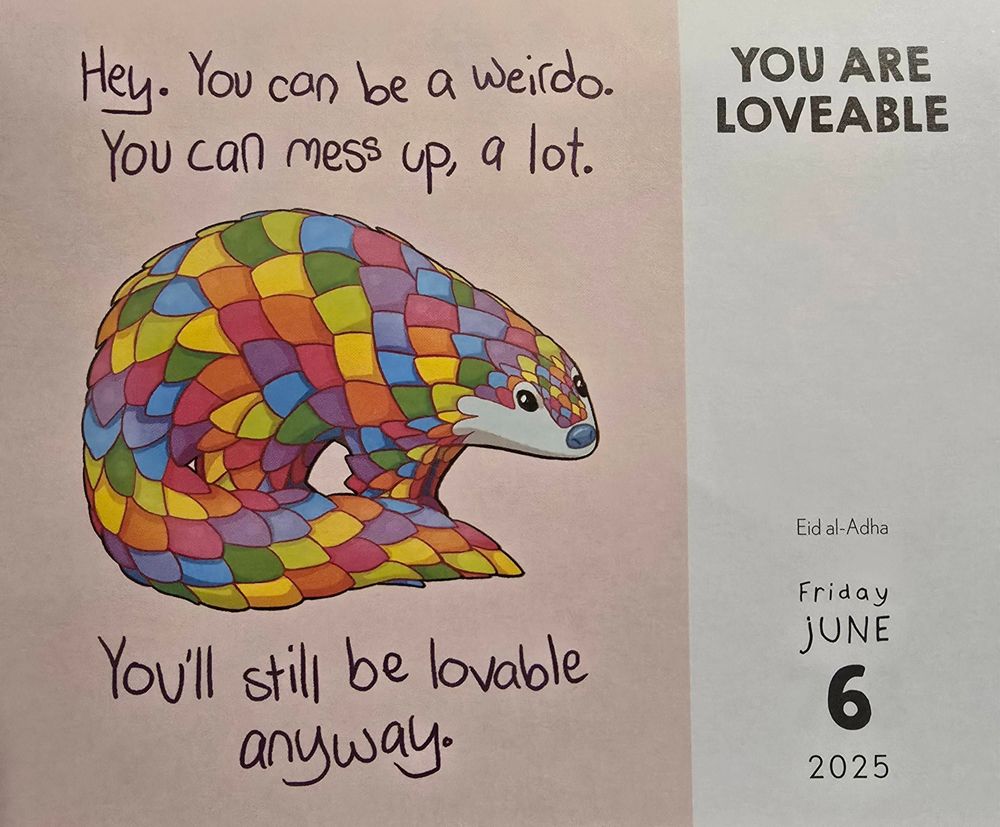 Hey. You can be a weirdo.
You can mess up, a lot.
You'll still be lovable
anyway.
YOU ARE
LOVEABLE
Eid al-Adha
Friday
jUNE
6
2025